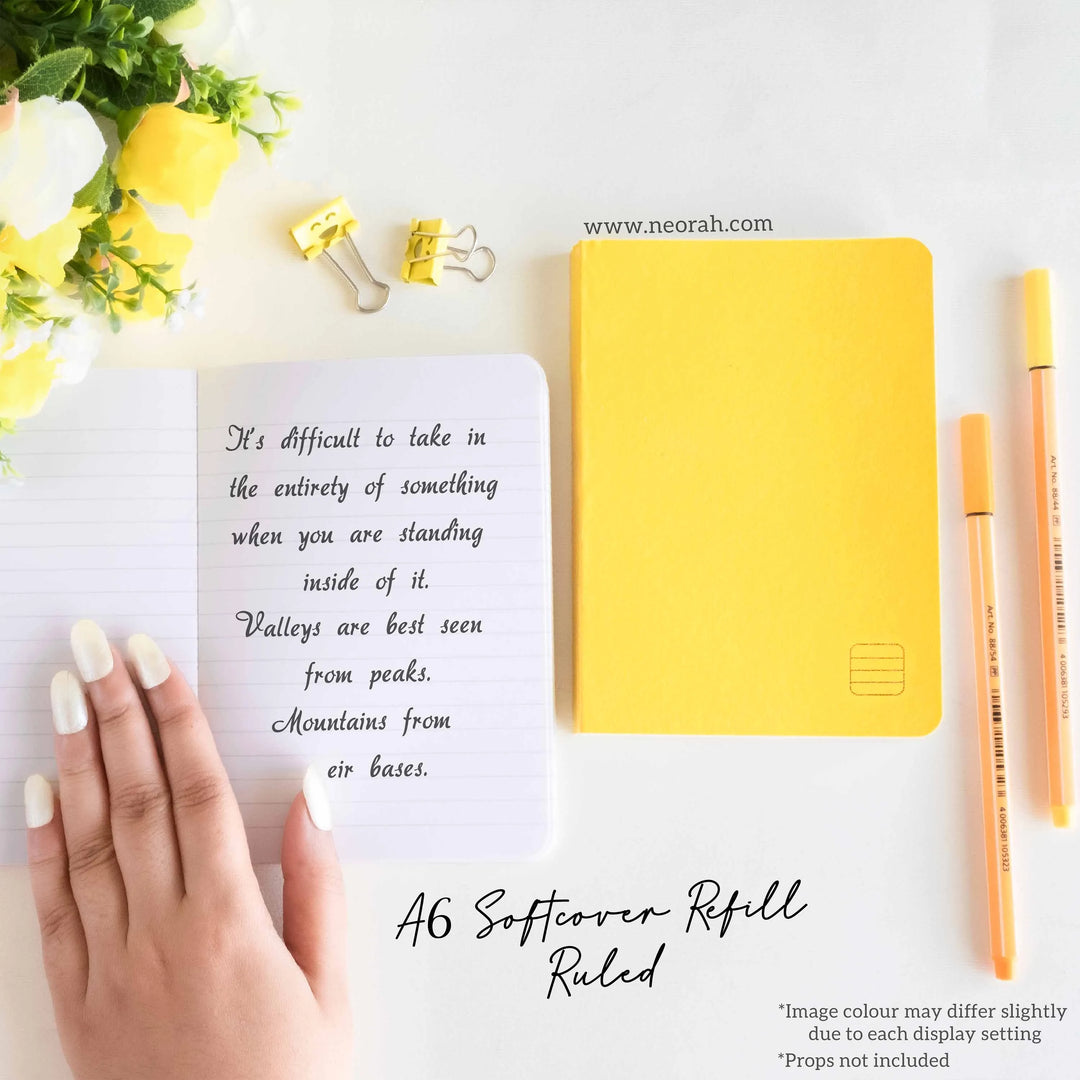 www.neorah.com
It's difficult to take in
the entirety of something
when you are standing
inside of it.
Valleys are best seen
from peaks.
Mountains from
eir bases.
Art. No. 88/44
4 006381 105293
Art. No. 88/54
4 006381 105323
A6 Softcover Refill
Ruled
*Image colour may differ slightly
due to each display setting
*Props not included